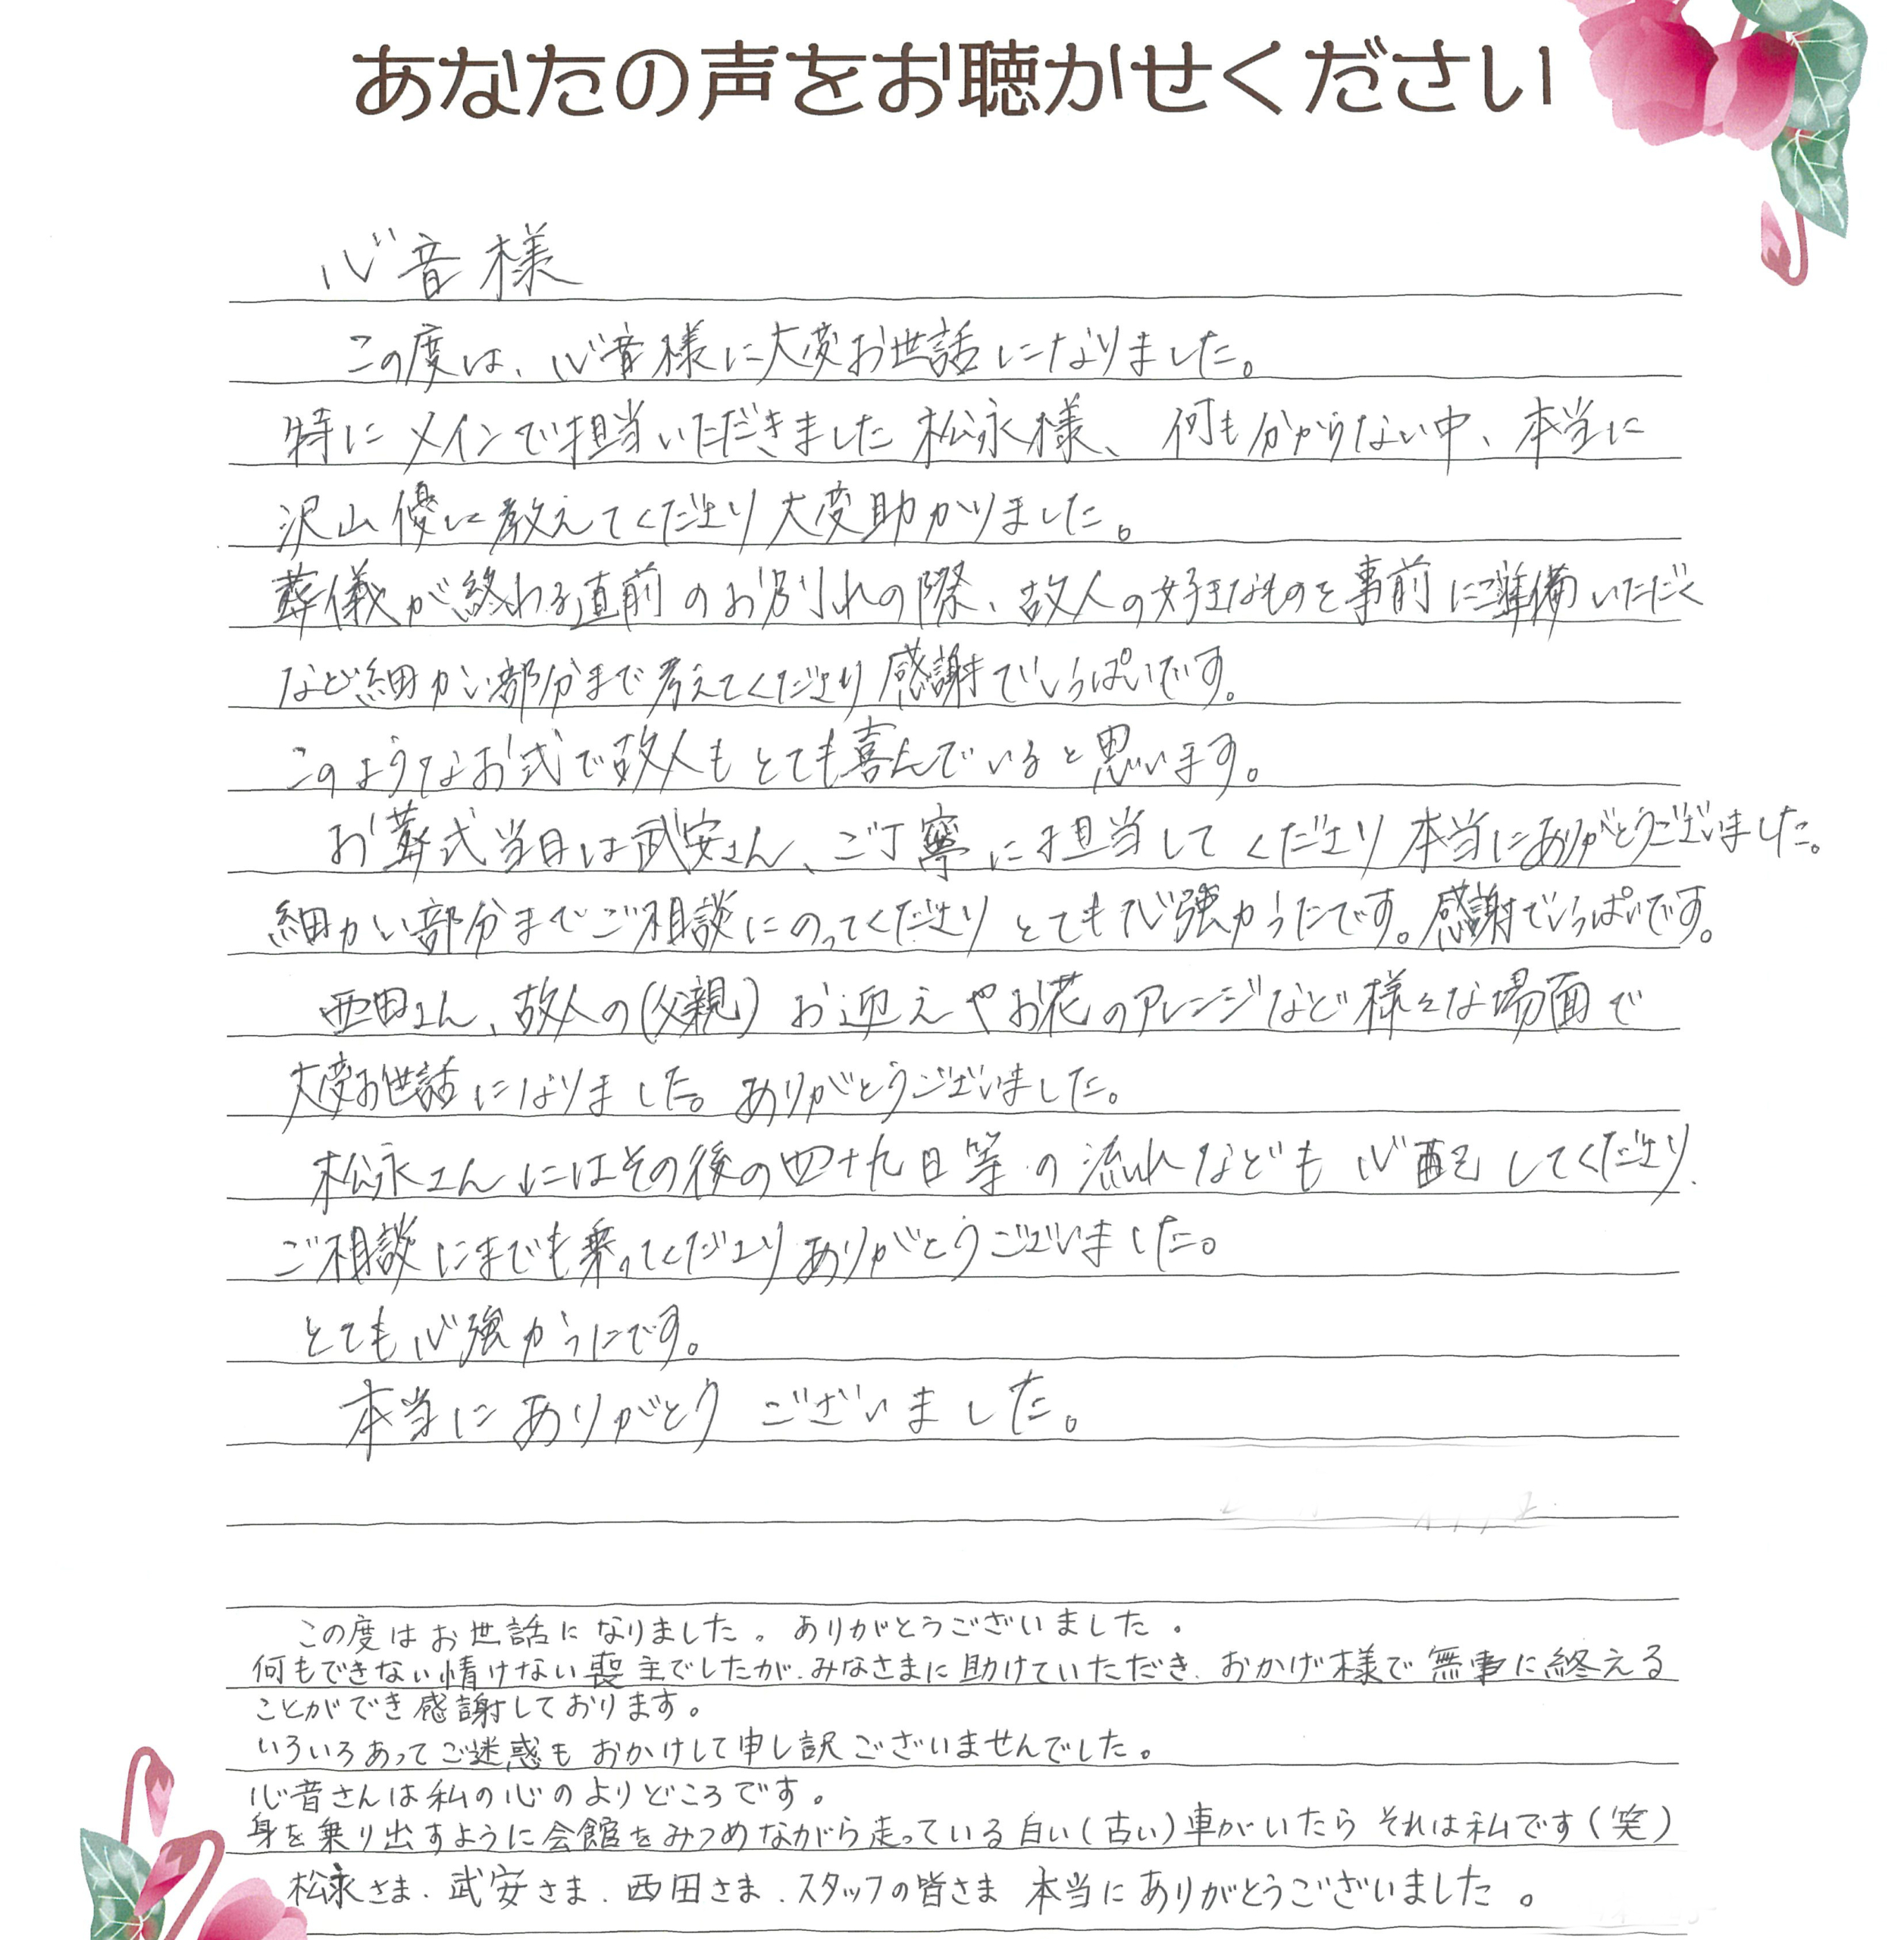 あなたの声をお聴かせください
心音様
この度は、心音様に大変お世話になりました。
特にメインで担当いただきました松永様、何も分からない中、本当に
沢山優に教えてくださり大変助かりました。
葬儀が終わる直前のお別れの際、故人の好きなものを事前にご準備いただく
など細かい部分まで考えてくださり感謝でいっぱいです。
このようなお式で故人もとても喜んでいると思います。
お葬式当日は武安さん、ご丁寧に担当してくださり本当にありがとうございました。
細かい部分までご相談にのってくださりとても心強かったです。感謝でいっぱいです。
西田さん、故人の(父親)お迎えやお花のアレンジなど様々な場面で
大変お世話になりました。ありがとうございました。
松永さんにはその後の四十九日等の流れなども心配してくださり
ご相談にまでも乗ってくださりありがとうございました。
とても心強かったです。
本当にありがとうございました。
この度はお世話になりました。ありがとうございました。
何もできない情けない喪主でしたが、みなさまに助けていただき、おかげ様で無事に終える
ことができ感謝しております。
いろいろあってご迷惑もおかけして申し訳ございませんでした。
心音さんは私の心のよりどころです。
身を乗り出すように会館をみつめながら走っている白い(古い)車がいたらそれは私です(笑)
松永さま、武安さま、西田さま、スタッフの皆さま 本当にありがとうございました。